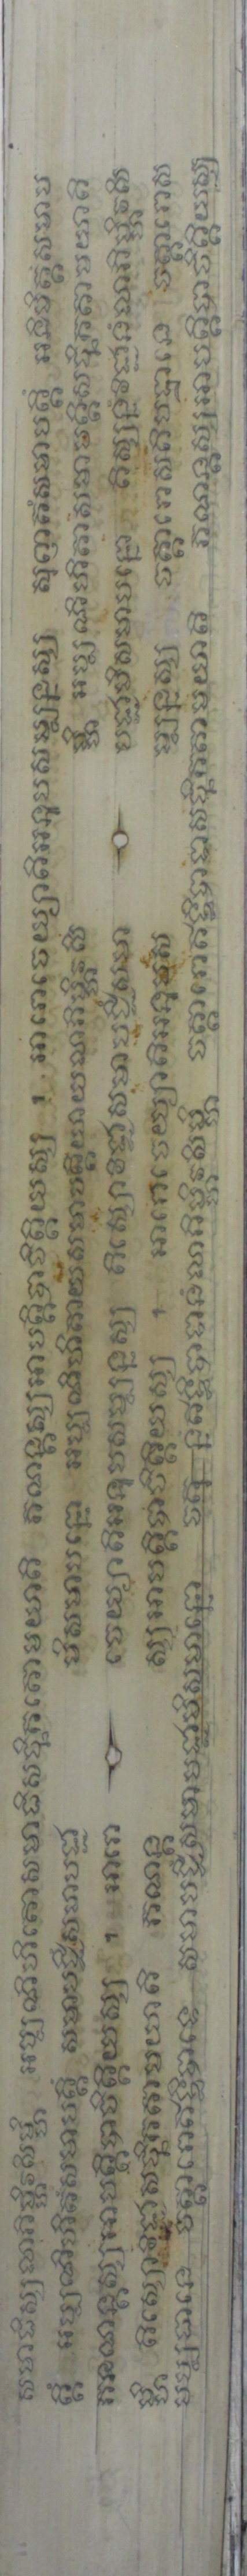 សមាធិស្សលាភិម្ហិវសិម្ហិ អប្បណិហិតោសមាធិសច្ឆិកតោមយាតិ ភណន្តស្សអាបត្តិបាចិត្តិយស្ស ។ អារោចេយ្យាតិអនុបសម្បន្នស្ស សុញតំសមាបត្តិំ អនិមិត្តំសមាប
ត្តិំ អប្បណិហិតំសមាបត្តិំ សមាបជ្ជឹសមាបជ្ជា មិសមាបន្នោ អប្បណិហិតាយសមាបត្តិយាយលាភិម្ហិវសិ ម្ហិ អប្បណិហិតាសមាបត្តិសច្ឆិកតាមយាតិ
ភណន្តស្សអាបត្តិបាចិត្តិយស្ស ។ អារោ ចេយ្យាតិអនុបសម្បន្នស្ស តិស្សោវិជ្ជាសមាបជ្ជឹសមា បជ្ជាមិសមាបន្នោ តិស្សន្នំវិជ្ជានំលាភិម្ហិវសិ
ម្ហិ តិស្សោវិជ្ជាសច្ឆិកតាមយាតិ ភណន្ត ស្សអាបត្តិបាចិត្តិយស្ស ។ អារោចេយ្យាតិអនុបស ម្បន្នស្ស ចត្តារោសតិបដ្ឋានេ ចត្តារោស
មប្បធានេ ចត្តារោឥទ្ធិបាទេ សមាបជ្ជឹសមាបជ្ជាមិសមាបន្នោ ចតុ ន្នឥទ្ធិបាទានំលាភិម្ហិវសិម្ហិ ចត្តារោឥទ្ធិបាទាសច្ឆិកតាមយាតិ ភណន្តស្សអាបត្តិបាចិត្តិយស្ស